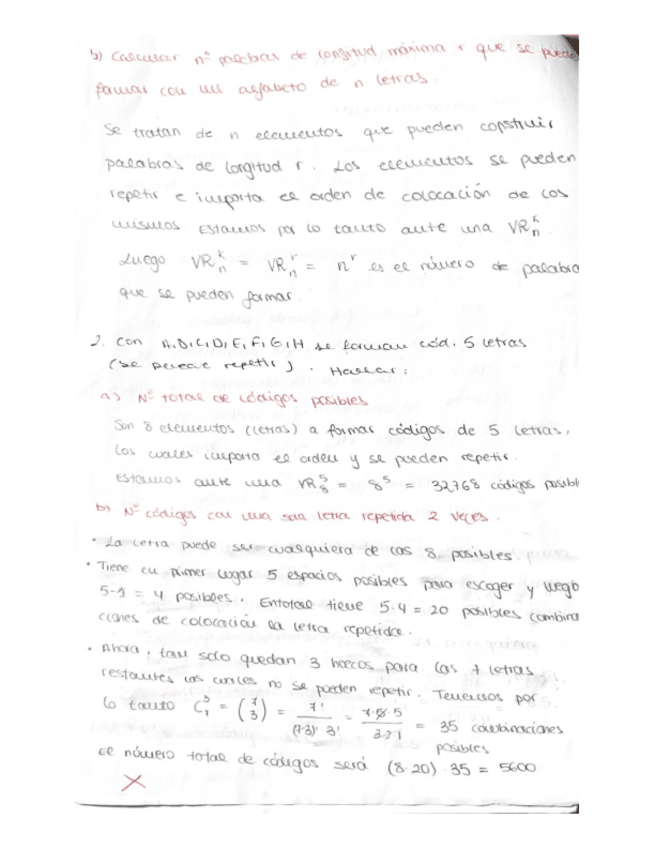 b) Calcular nº palabras de longitud máxima r que se puede
formar con un alfabeto de n letras.
Se tratan de n elementos que pueden construir
palabras de longitud r. Los elementos se pueden
repetir e importa el orden de colocación de los
mismos. Estamos por lo tanto ante una VRₙᵏ
Luego VRₙᵏ = VRₙʳ = nʳ es el número de palabra
que se pueden formar.
2. Con A,B,C,D,E,F,G,H se forman cód. 5 letras
(se permite repetir). Hallar:
a) Nº total de códigos posibles
Son 8 elementos (letras) a formar códigos de 5 letras,
los cuales importa el orden y se pueden repetir.
Estamos ante una VR₈⁵ = 8⁵ = 32768 códigos posibl
b) Nº códigos con una sola letra repetida 2 veces.
· La letra puede ser cualquiera de las 8 posibles.
· Tiene en primer lugar 5 espacios posibles para escoger y luego
5-1 = 4 posibles. En total tiene 5·4 = 20 posibles combina
ciones de colocación la letra repetida.
· Ahora, tan solo quedan 3 huecos para las 7 letras
restantes las cuales no se pueden repetir. Tenemos por
lo tanto C₇³ = (7 3) = 7!/(7-3)! 3! = 7·6·5/3·2·1 = 35 combinaciones
posibles
El número total de códigos será (8·20)·35 = 5600